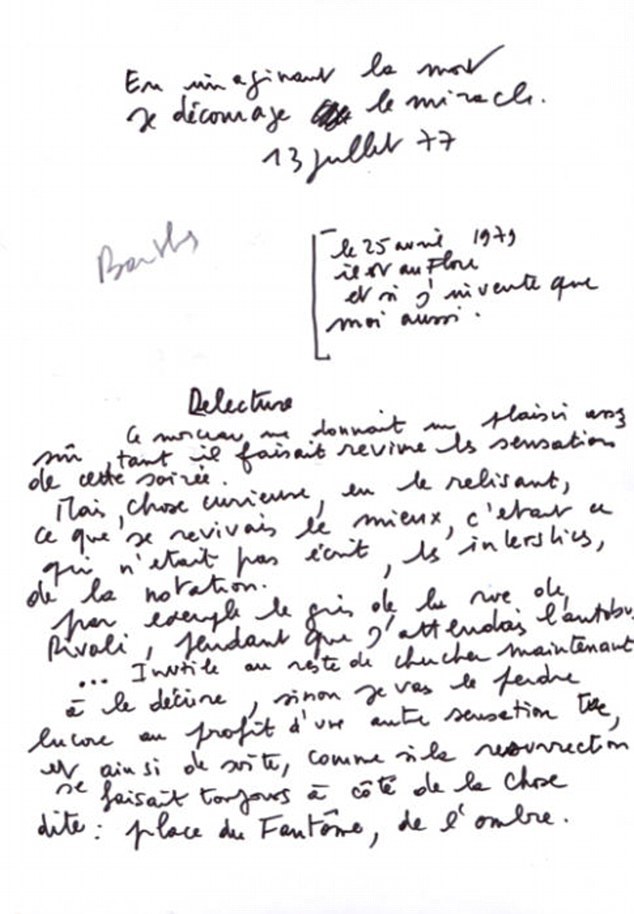 En imaginant la mort
je décourage le miracle.
13 juillet 77
Barthes
le 25 avril 1979
il est au Flore
et si j'invente que
moi aussi.
Delecture
Ce morceau me donnait un plaisir assez
sûr, tant il faisait revivre les sensations
de cette soirée.
Mais, chose curieuse, en le relisant,
ce que je revivais le mieux, c'était ce
qui n'était pas écrit, les interstices,
de la notation.
par exemple le gris de la rue de
Rivoli, pendant que j'attendais l'autobus
... Inutile au reste de chercher maintenant
à le décrire, sinon je vas le perdre
encore au profit d'une autre sensation
et ainsi de suite, comme si la resurrection
se faisait toujours à côté de la chose
dite : place du Fantôme, de l'ombre.